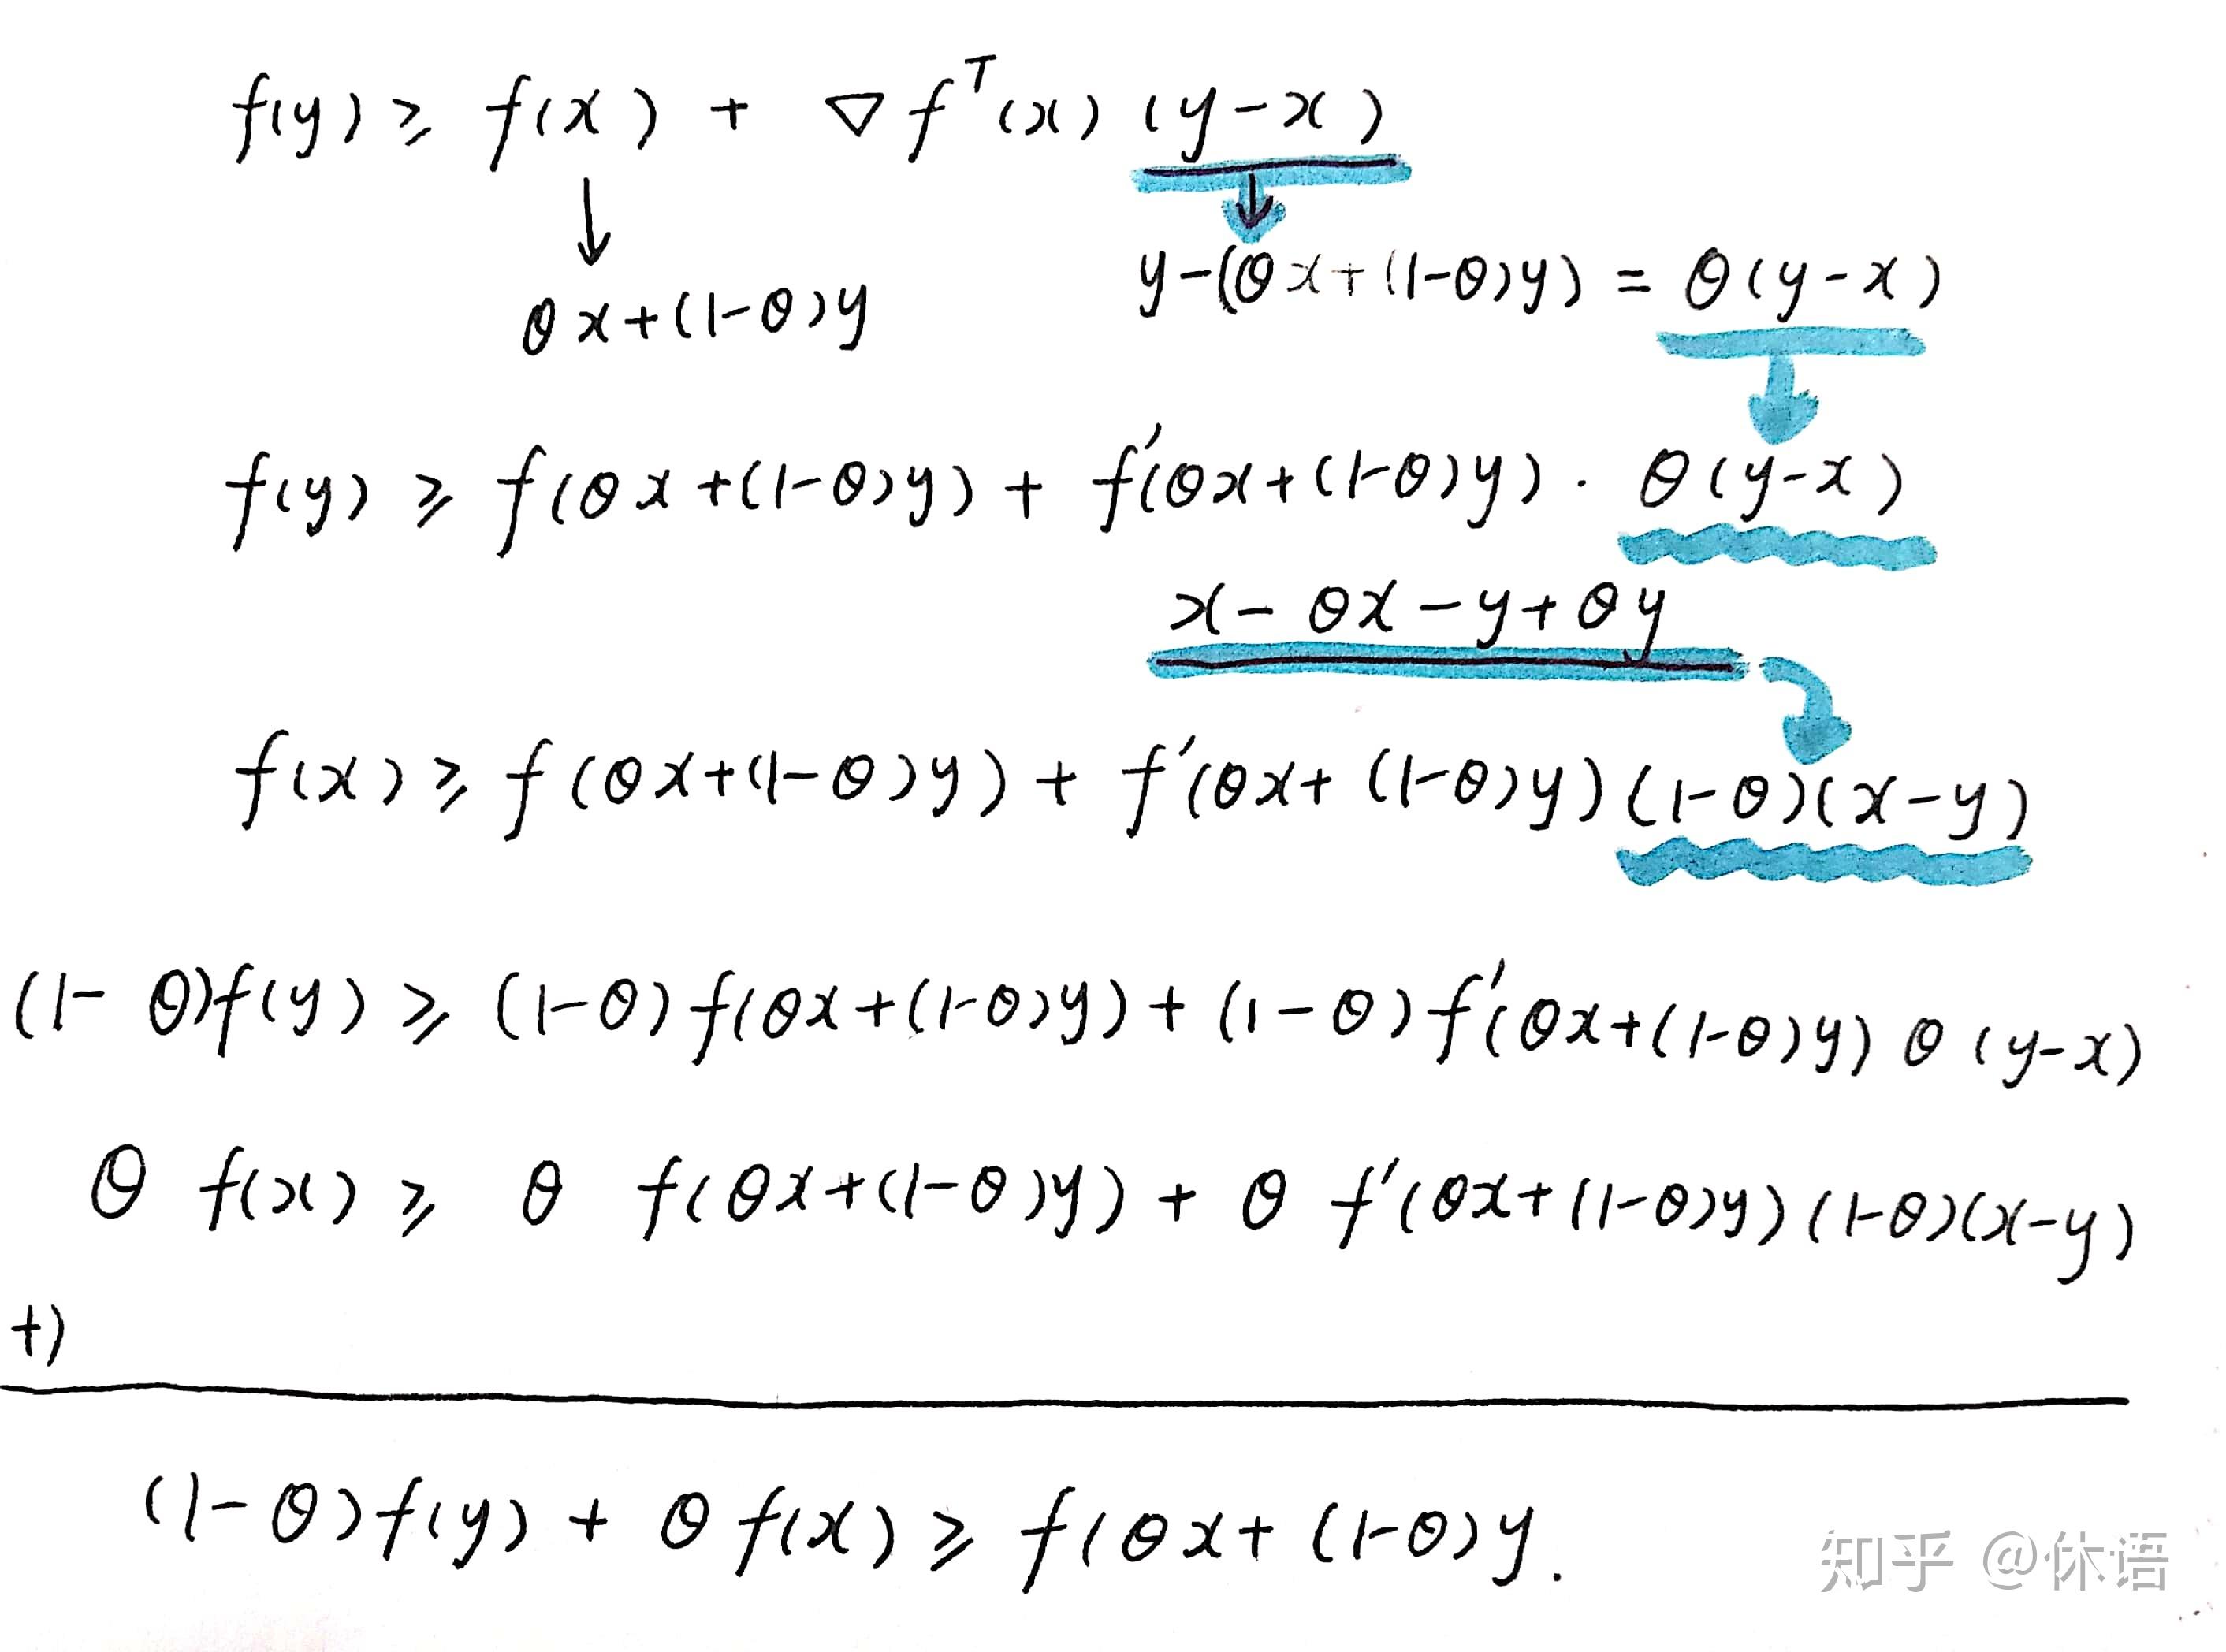 f(y) ≥ f(x) + ∇f^T(x) (y-x)
↓ ↓
θx+(1-θ)y y-(θx+(1-θ)y) = θ(y-x)
f(y) ≥ f(θx+(1-θ)y) + f'(θx+(1-θ)y) · θ(y-x)
x-θx-y+θy
f(x) ≥ f(θx+(1-θ)y) + f'(θx+(1-θ)y)(1-θ)(x-y)
(1-θ)f(y) ≥ (1-θ)f(θx+(1-θ)y) + (1-θ)f'(θx+(1-θ)y)θ(y-x)
θ f(x) ≥ θ f(θx+(1-θ)y) + θ f'(θx+(1-θ)y)(1-θ)(x-y)
+)
(1-θ)f(y) + θf(x) ≥ f(θx+(1-θ)y.
知乎 @休语